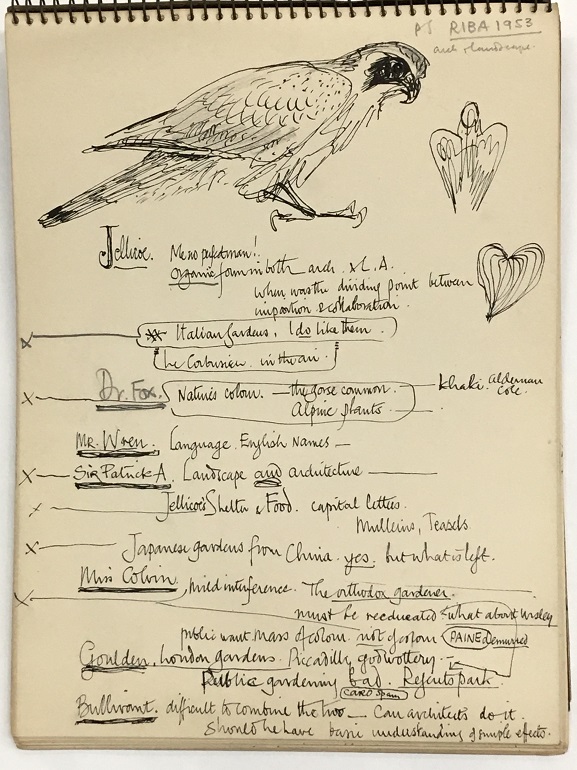 RIBA 1953
arch & landscape.
Jellicoe. Me no perfect man!
organic form in both arch. & L.A.
when was the dividing point between
imposition & collaboration.
Italian Gardens, I do like them.
Le Corbusier in the air.
Dr. Fox. Natures colour. — the gorse common. — khaki. Alderman Cole.
Alpine plants
Mr. Wren. Language. English Names —
Sir Patrick A. Landscape and architecture
Jellicoe's Shelter & Food. capital letters.
Mulleins, Teasels
Japanese gardens from China. yes. but what is left.
Miss Colvin, mild interference. The orthodox gardener.
must be reeducated & what about Wisley
public want mass of colour. not of colour PAINE demurred
Goulden, London gardens. Piccadilly godwottery.
Public gardening bad. Regents park.
Bullivant. difficult to combine the two — Can architects do it.
Should he have basic understanding of simple effects.